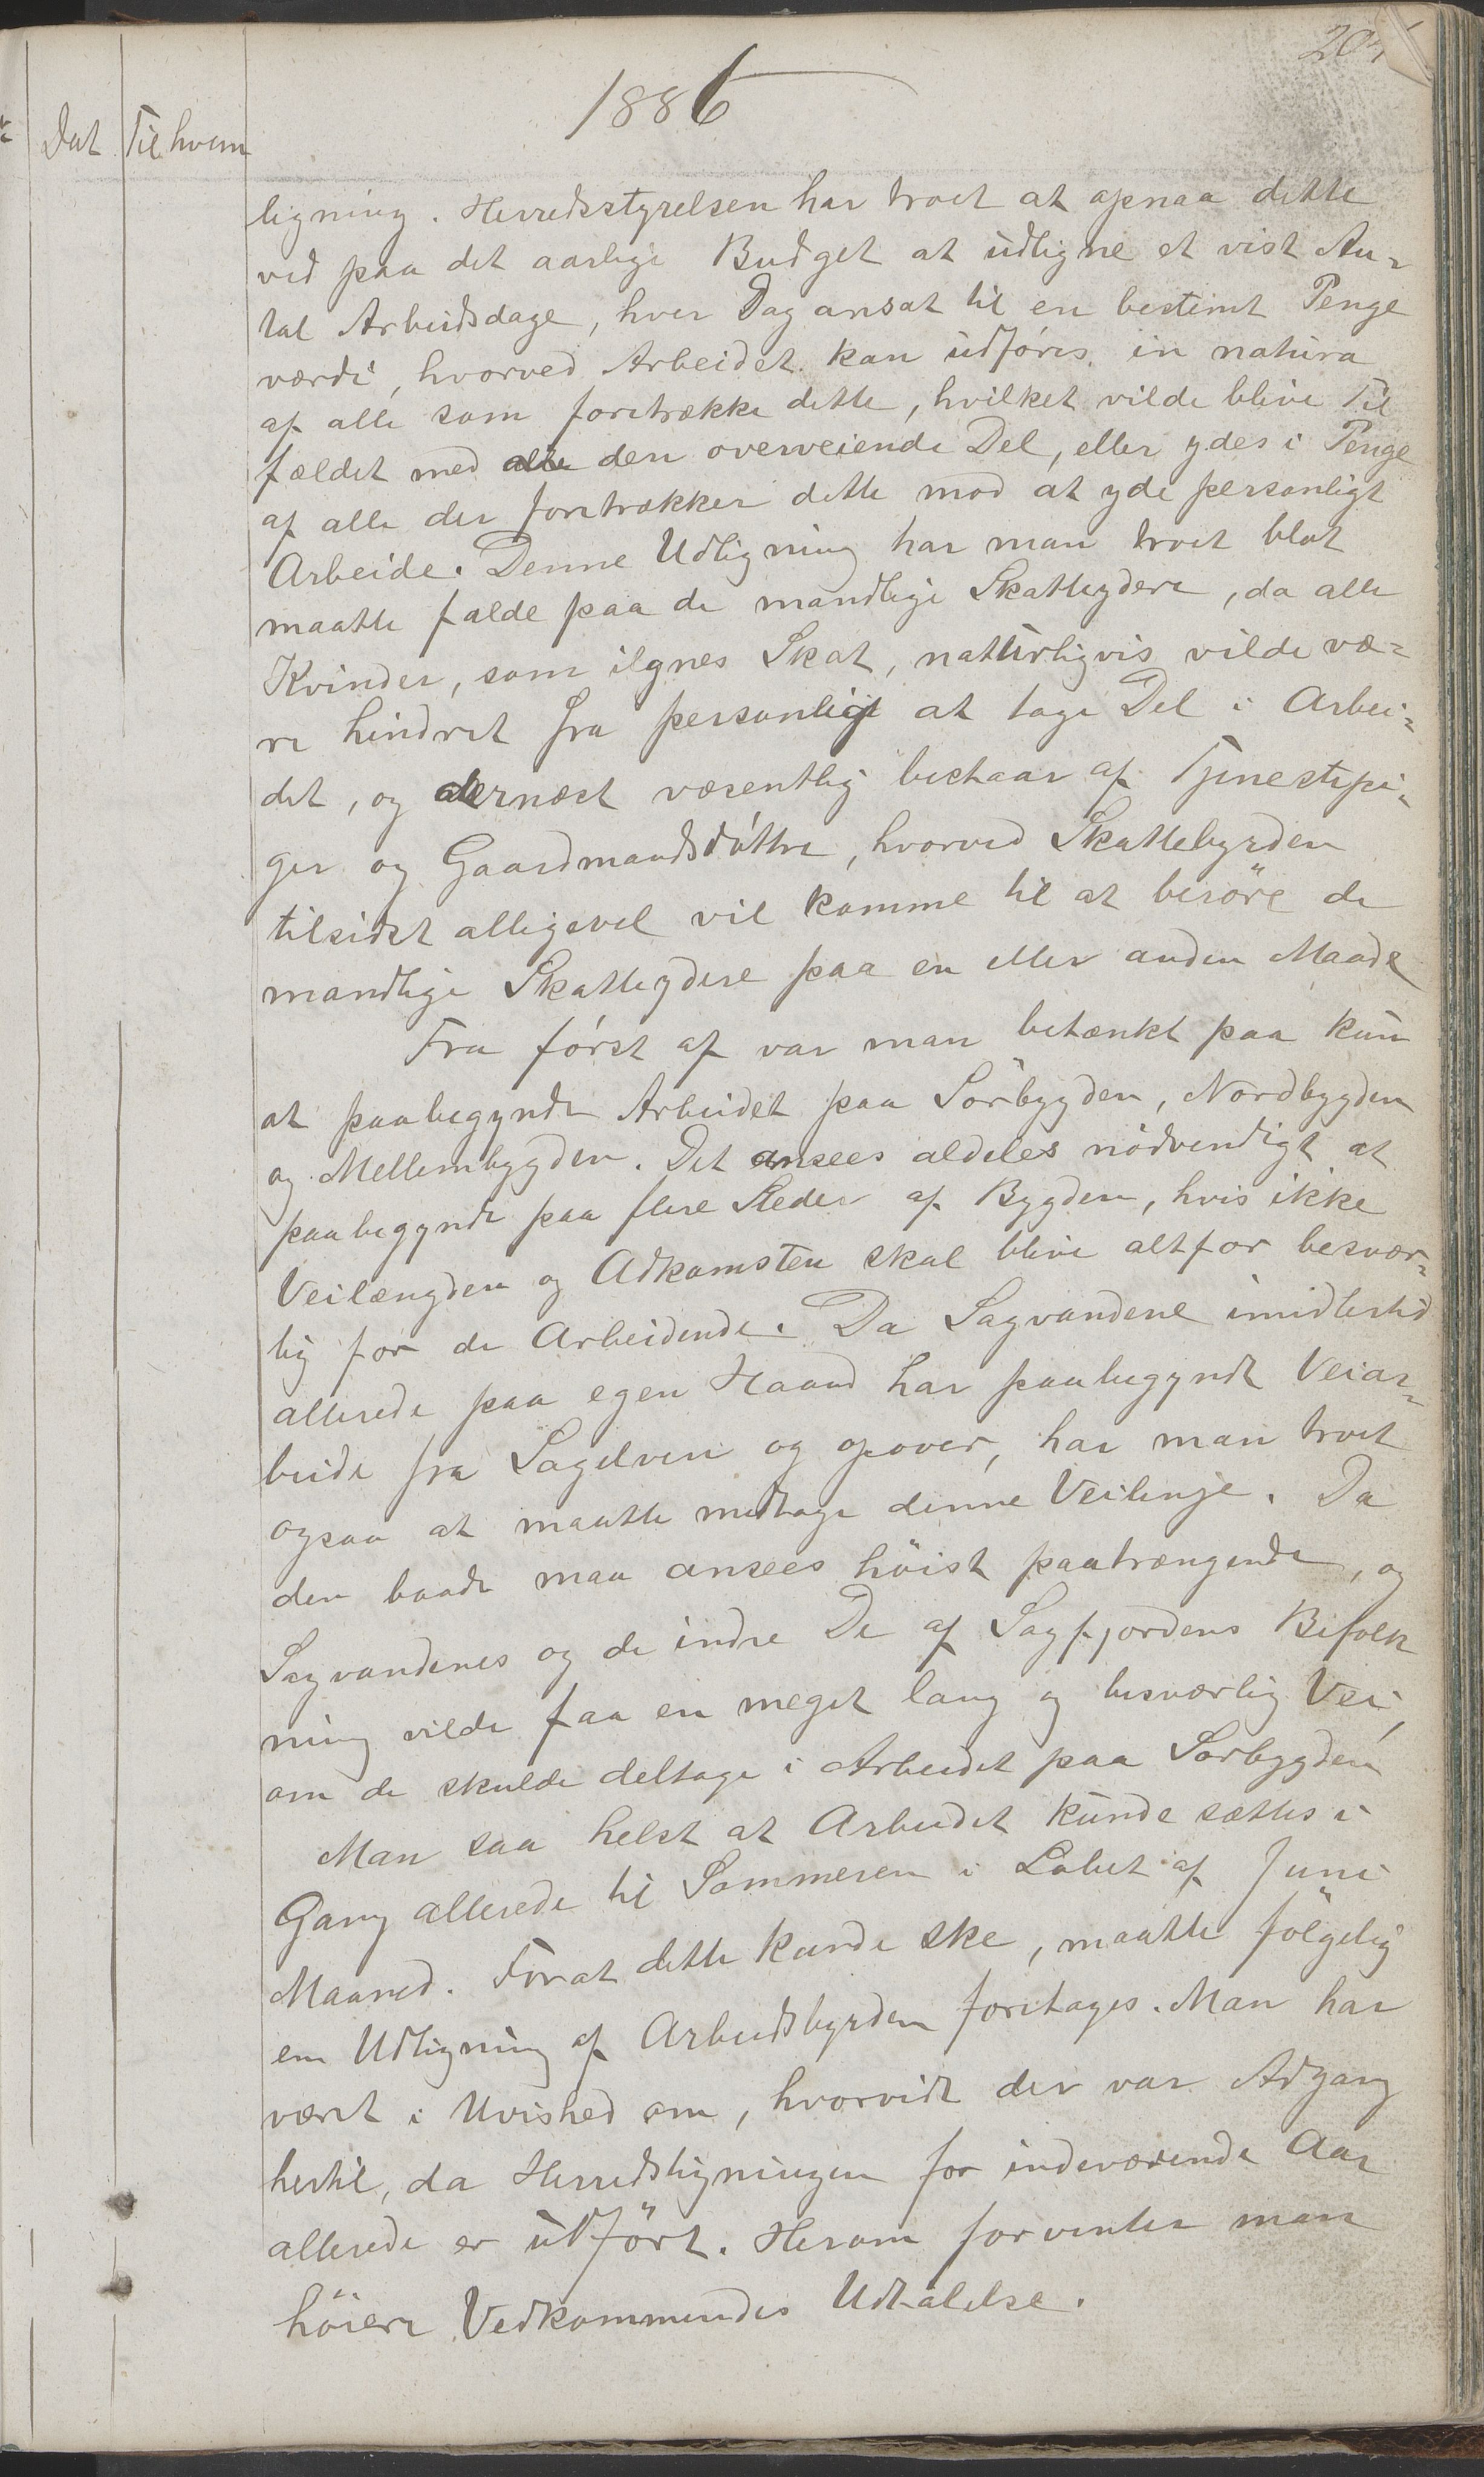 1886
Dat Til hvem
ligning. Herredsstyrelsen har troet at opnaa dette
ved paa det aarlige Budget at udligne et vist An-
tal Arbeidsdage, hver Dag ansat til en bestemt Penge
værdi, hvorved Arbeidet kan udføres in natura
af alle som foretrække dette, hvilket vilde blive Til
fældet med den overveiende Del, eller ydes i Penge
af alle der foretrækker dette mod at yde personligt
Arbeide. Denne Udligning har man troet blot
maatte falde paa de mandlige Skatteydere, da alle
Kvinder, som ilignes Skat, naturligvis vilde væ-
re hindret fra personlig at tage Del i Arbei-
det, og dernæst væsentlig bestaar af Tjenestepi-
ger og Gaardmandsdøttre, hvorved Skattebyrden
tilsidst alligevel vil komme til at berøre de
mandlige Skatteydere paa en eller anden Maade
Fra først af var man betænkt paa kun
at paabegynde Arbeidet paa Sörbygden, Nordbygden
og Mellembygden. Det ansees aldeles nödvendigt at
paabegynde paa flere Steder af Bygden, hvis ikke
Veilængden og Adkomsten skal blive altfor besvær-
lig for de Arbeidende. Da Sagvandene imidlertid
allerede paa egen Haand har paabegyndt Veiar-
beide fra Sagelven og opover, har man troet
ogsaa at maatte medtage denne Veilinje. Da
den baade maa ansees höist paatrængende, og
Sagvandenes og de indre De af Sagfjordens Befolk
ning vilde faa en meget lang og besværlig Vei,
om de skulde deltage i Arbeidet paa Sørbygden
Man saa helst at Arbeidet kunde sættes i
Gang allerede til Sommeren i Løbet af Juni
Maaned. Forat dette kunde ske, maatte fölgelig
en Udligning af Arbeidsbyrden foretages. Man har
været i Uvished om, hvorvidt der var Adgang
hertil, da Herredsligningen for indeværende Aar
allerede er udfört. Herom forventer man
höiere Vedkommendes Udtalelse.